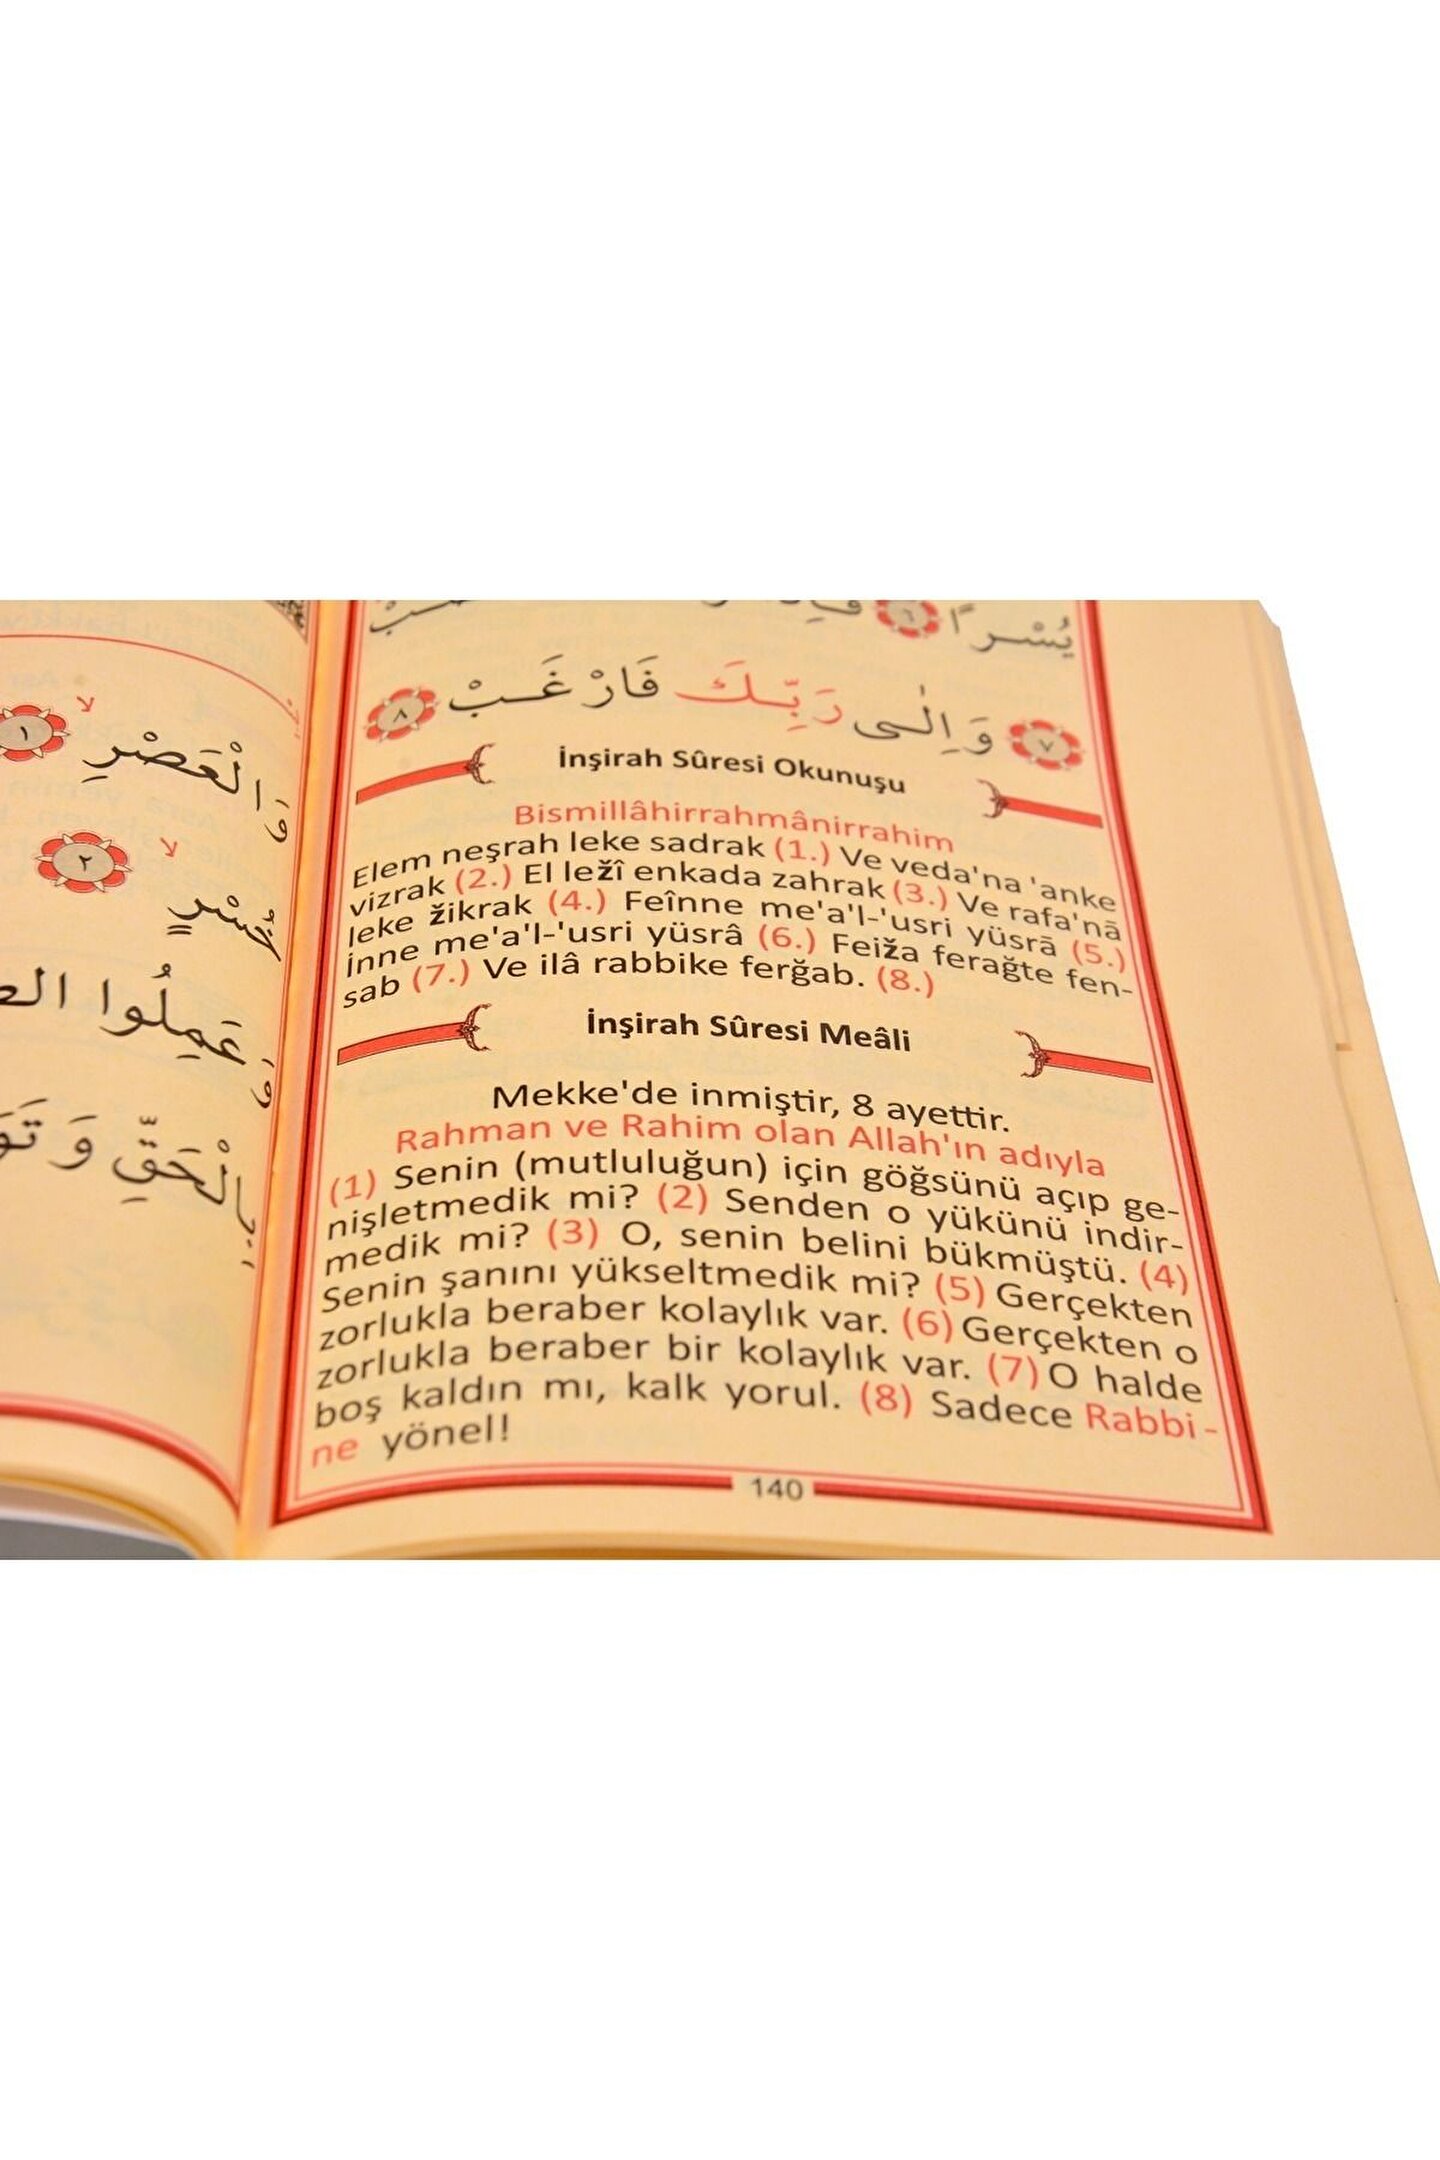 يُسْرًا ٦
٧ وَاِلٰى رَبِّكَ فَارْغَبْ ٨
İnşirah Sûresi Okunuşu
Bismillâhirrahmânirrahim
Elem neşrah leke sadrak (1.) Ve veda'na 'anke
vizrak (2.) El ležî enkada zahrak (3.) Ve rafa'nā
leke žikrak (4.) Feînne me'a'l-'usri yüsrā (5.)
İnne me'a'l-'usri yüsrâ (6.) Feiža ferağte fen-
sab (7.) Ve ilâ rabbike ferğab. (8.)
İnşirah Sûresi Meâli
Mekke'de inmiştir, 8 ayettir.
Rahman ve Rahim olan Allah'ın adıyla
(1) Senin (mutluluğun) için göğsünü açıp ge-
nişletmedik mi? (2) Senden o yükünü indir-
medik mi? (3) O, senin belini bükmüştü. (4)
Senin şanını yükseltmedik mi? (5) Gerçekten
zorlukla beraber kolaylık var. (6) Gerçekten o
zorlukla beraber bir kolaylık var. (7) O halde
boş kaldın mı, kalk yorul. (8) Sadece Rabbi-
ne yönel!
140
وَالْعَصْرِ ١
خُسْرٍ ٢
وَعَمِلُوا
بِالْحَقِّ